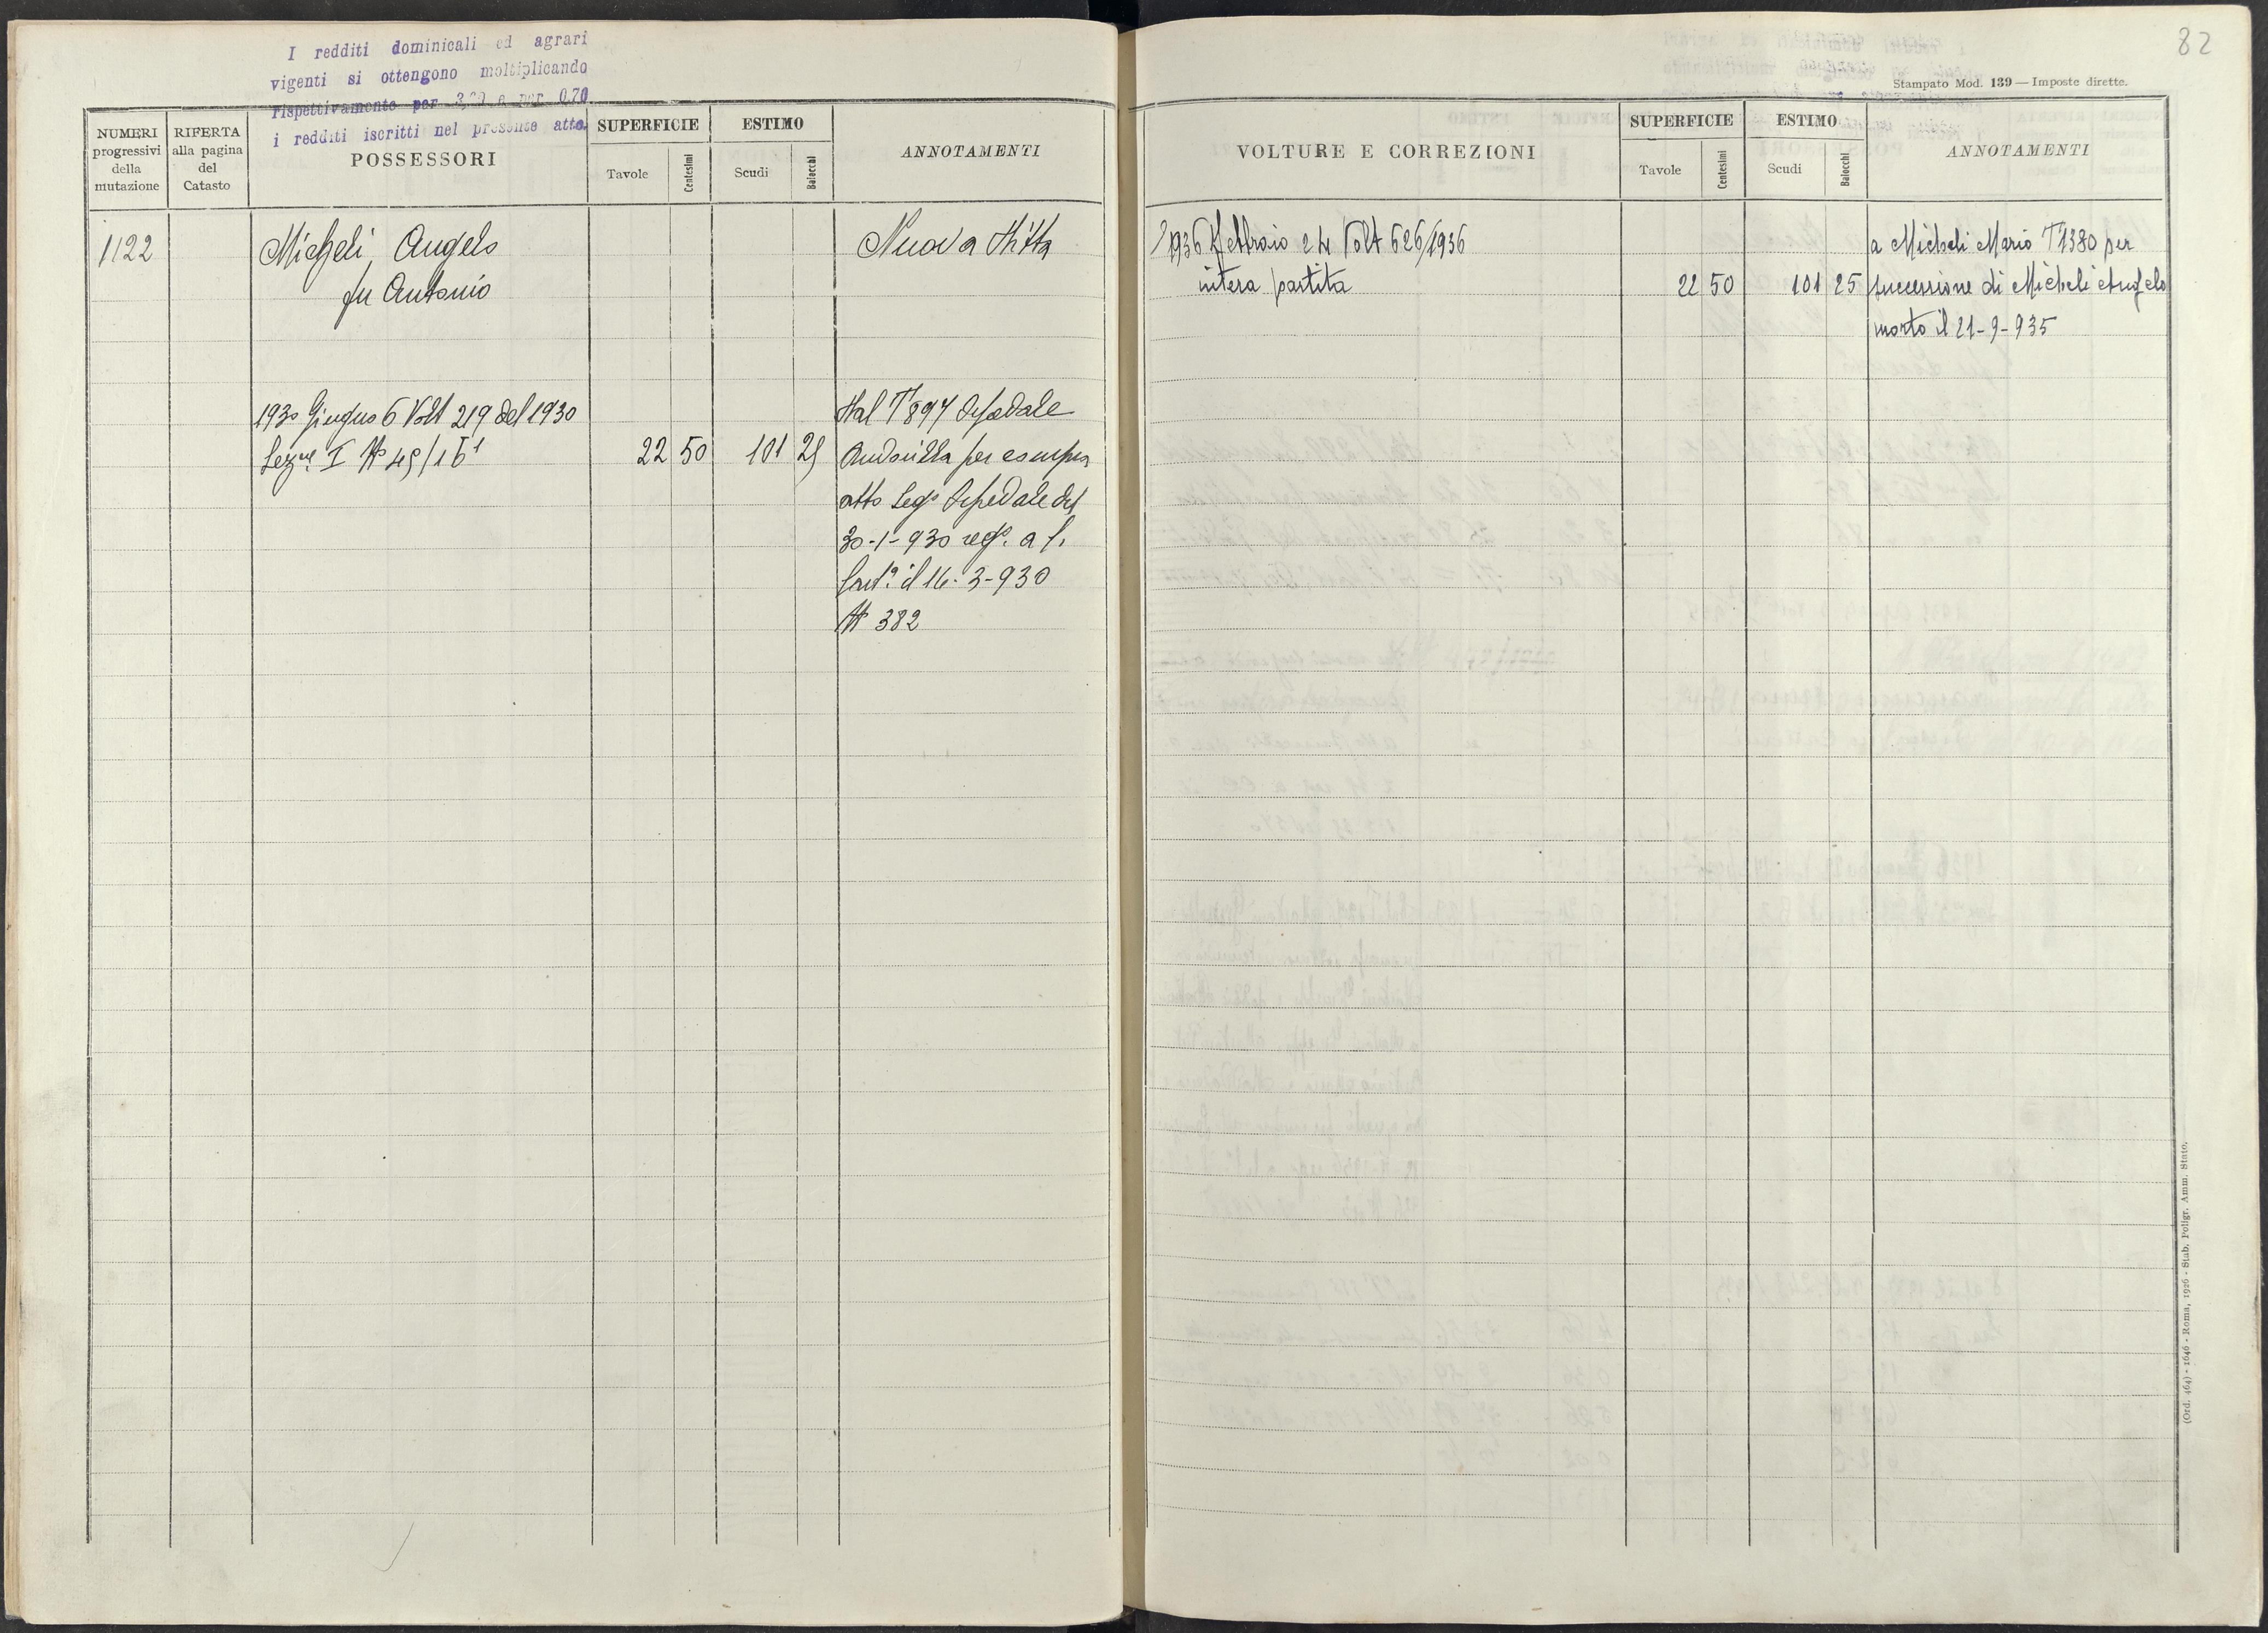 I redditi dominicali ed agrari
vigenti si ottengono moltiplicando
rispettivamente per 3,20 e per 0,70
i redditi iscritti nel presente atto.
NUMERI progressivi della mutazione
RIFERTA alla pagina del Catasto
POSSESSORI
SUPERFICIE
Tavole
Centesimi
ESTIMO
Scudi
Baiocchi
ANNOTAMENTI
1122
Micheli Angelo
fu Antonio
Nuova Ditta
1930 Giugno 6 Volt 219 del 1930
Sezne I N° 49/1b1
22 50
101 25
Dal T 897 Ospedale
per compra
atto Seg° Ospedale del
30-1-930 reg. a
il 14-3-930
N 382
82
Stampato Mod. 139 — Imposte dirette.
VOLTURE E CORREZIONI
SUPERFICIE
Tavole
Centesimi
ESTIMO
Scudi
Baiocchi
ANNOTAMENTI
1936 Febbraio 24 Volt 626/1936
intera partita
22 50
101 25
a Micheli Mario T1380 per
successione di Micheli Angelo
morto il 21-9-935
(Ord. 464) - 1646 - Roma, 1926 - Stab. Poligr. Amm. Stato.